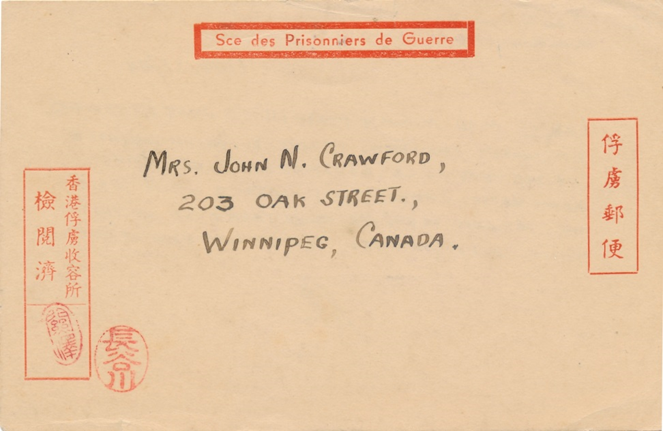 Sce des Prisonniers de Guerre
MRS. JOHN N. CRAWFORD,
203 OAK STREET.,
WINNIPEG, CANADA.
俘虜郵便
香港俘虜收容所
檢閲濟
長谷川